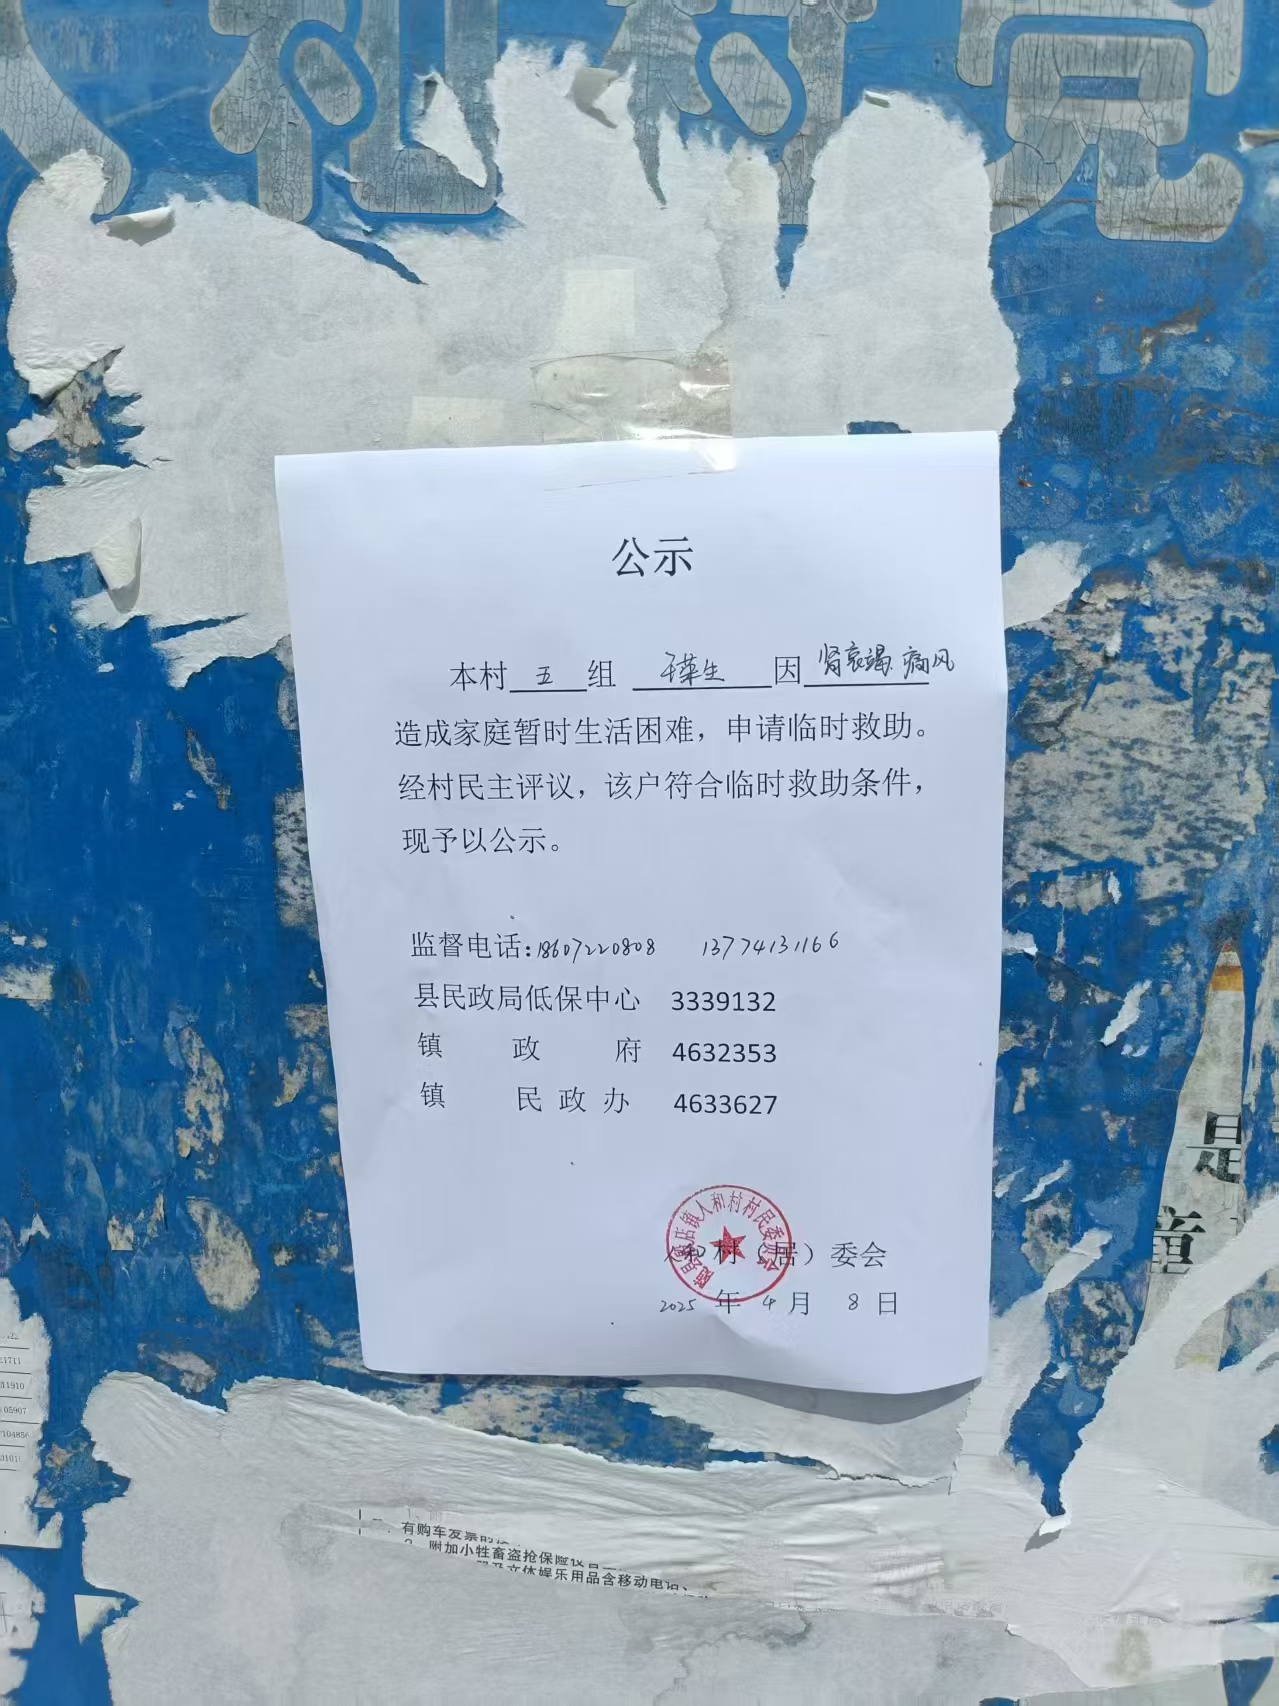 公示
本村五组 叶生 因肾衰竭 痛风
造成家庭暂时生活困难，申请临时救助。
经村民主评议，该户符合临时救助条件，
现予以公示。
监督电话:18607220808 13774131166
县民政局低保中心 3339132
镇 政 府 4632353
镇 民 政 办 4633627
店镇人和村村民委员会
和村（居）委会
2025 年 4 月 8 日
是
童
21711
31910
05907
104856
有购车发票的
附加小牲畜盗抢保险仅
文体娱乐用品含移动电话、